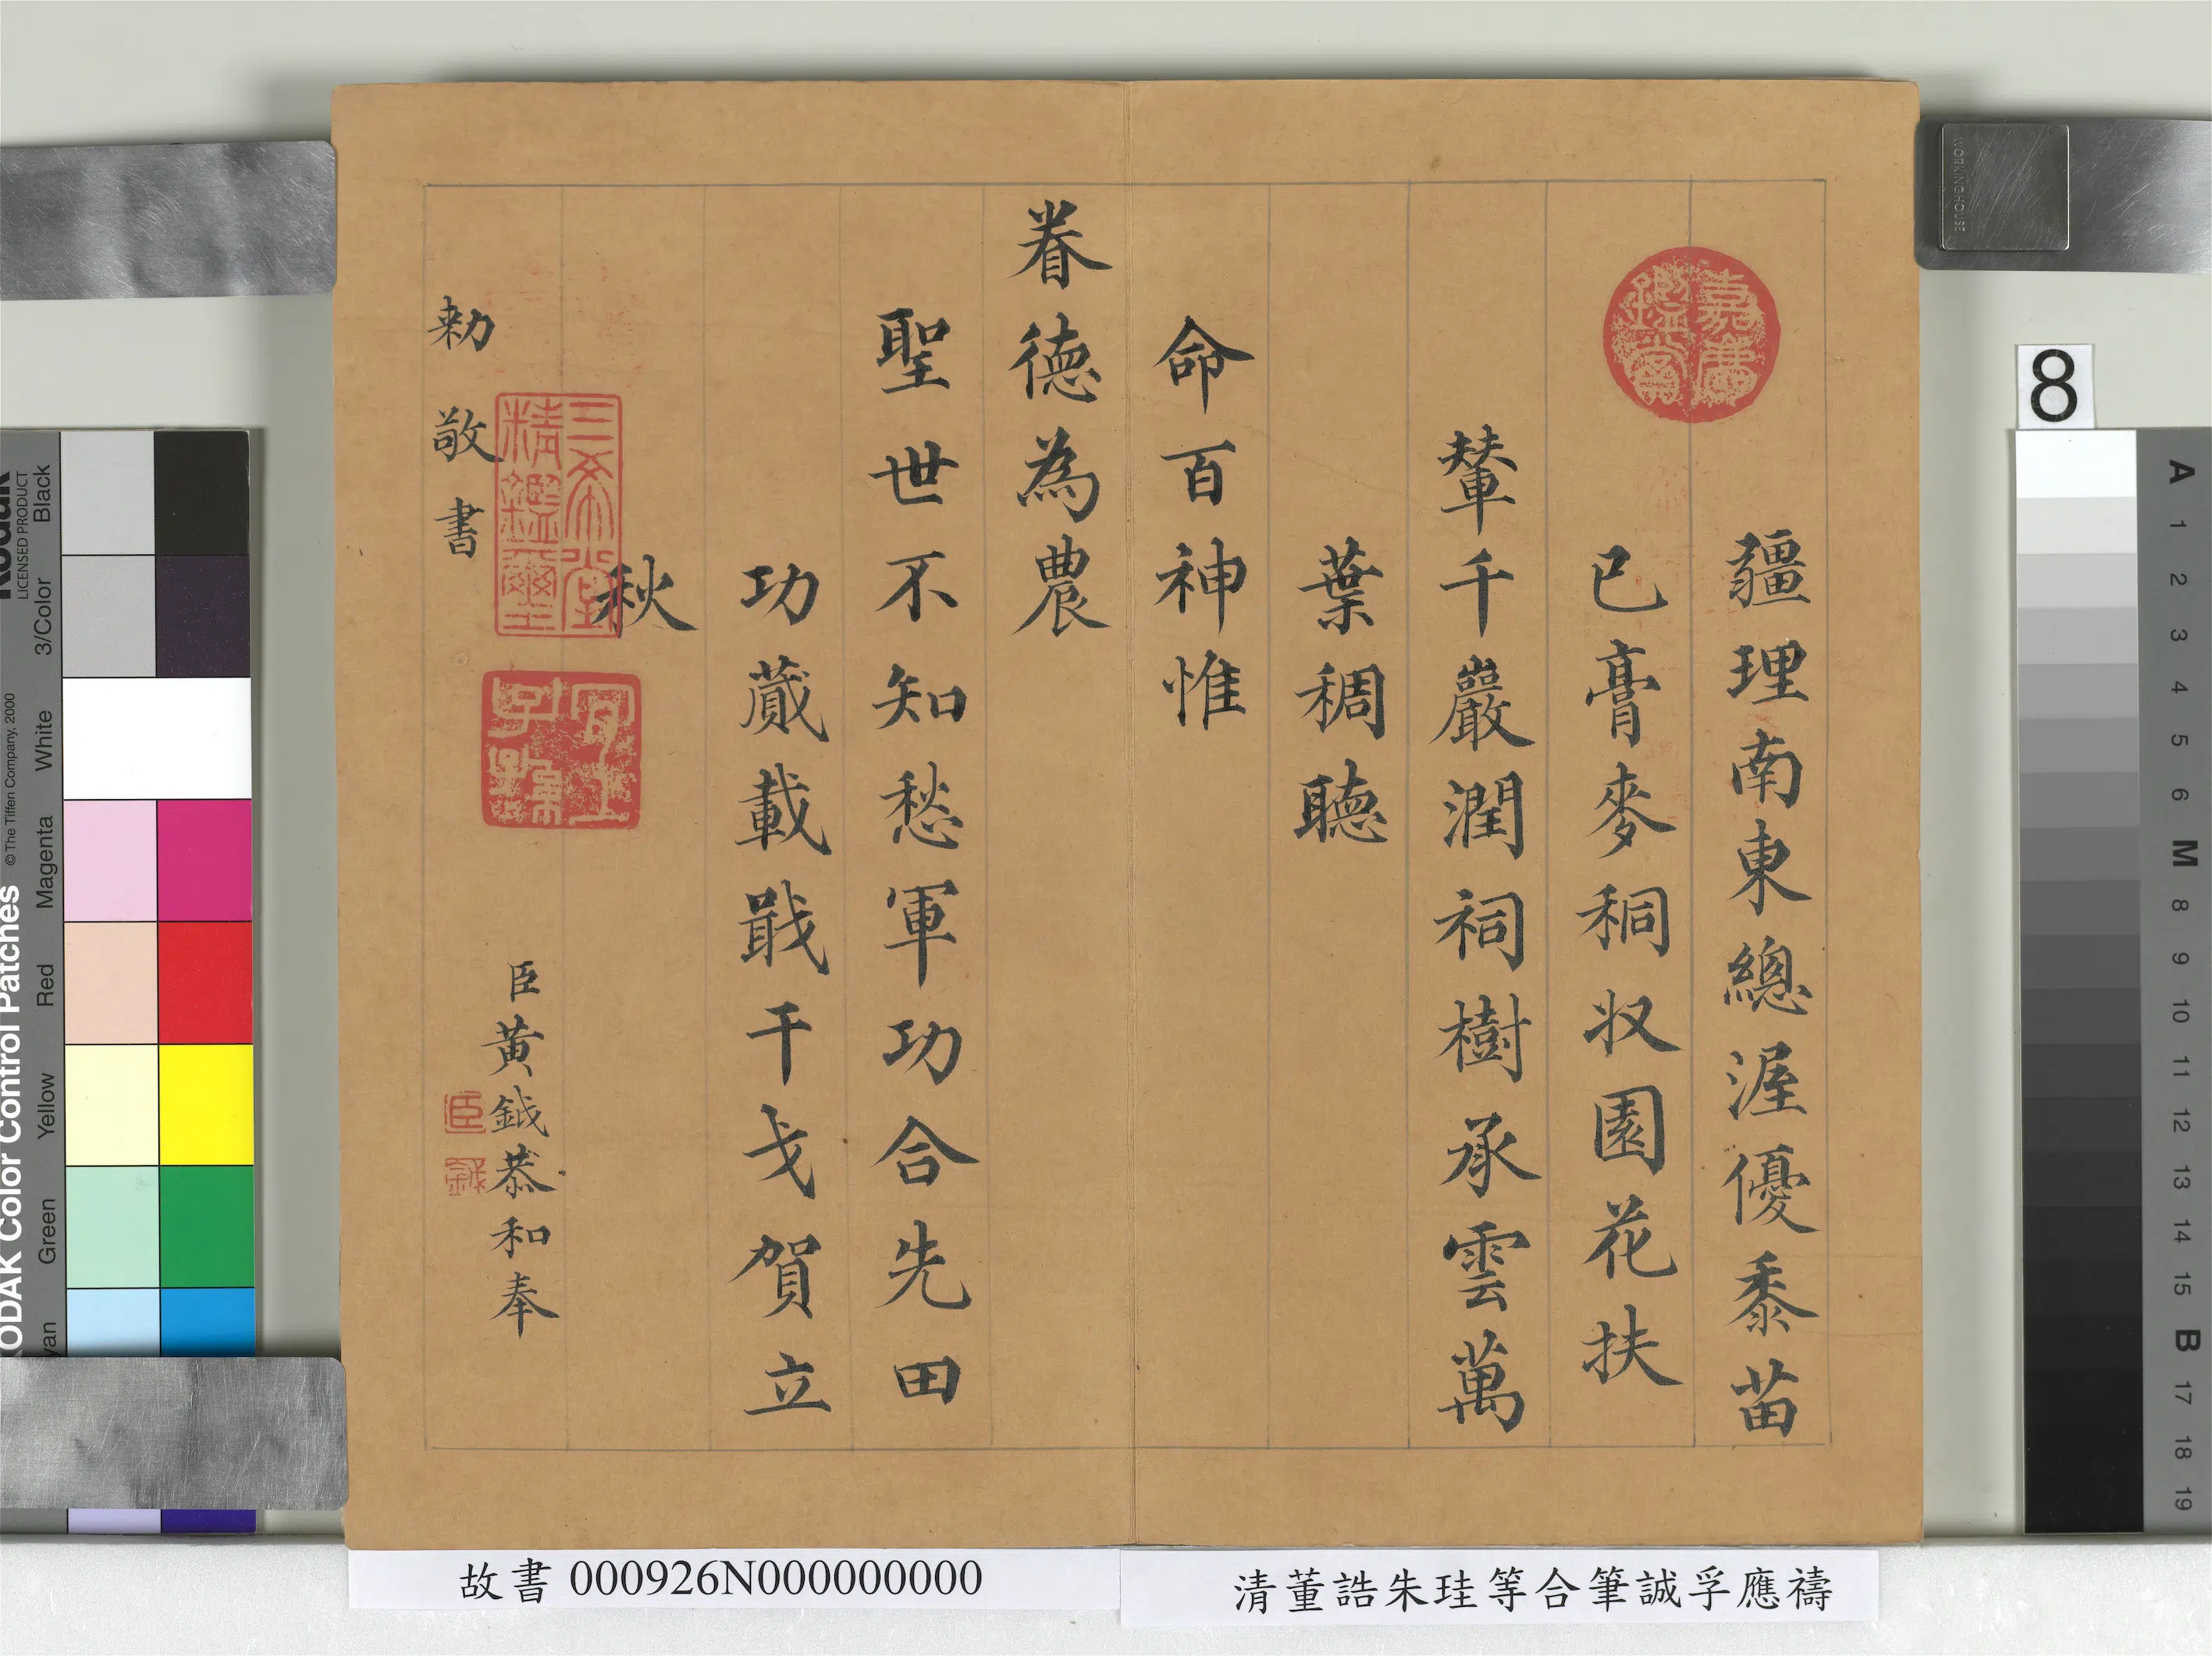 疆理南東總渥優黍苗
已膏麥秱収園花扶
輦千巖潤祠樹承雲萬
葉稠聽
命百神惟
眷德為農
聖世不知愁軍功合先田
功蕆載戢干戈賀立
秋
臣黃鉞恭和奉
勑敬書
嘉慶鑑賞
三希堂精鑑璽
宜子孫
臣
鉞
故書 000926N000000000
清董誥朱珪等合筆誠孚應禱
8
WORKINGHOUSE
KODAK Color Control Patches
©The Tiffen Company, 2000
Kodak
LICENSED PRODUCT
Black
3/Color
White
Magenta
Red
Yellow
Green
yan
A
1
2
3
4
5
6
M
8
9
10
11
12
13
14
15
B
17
18
19